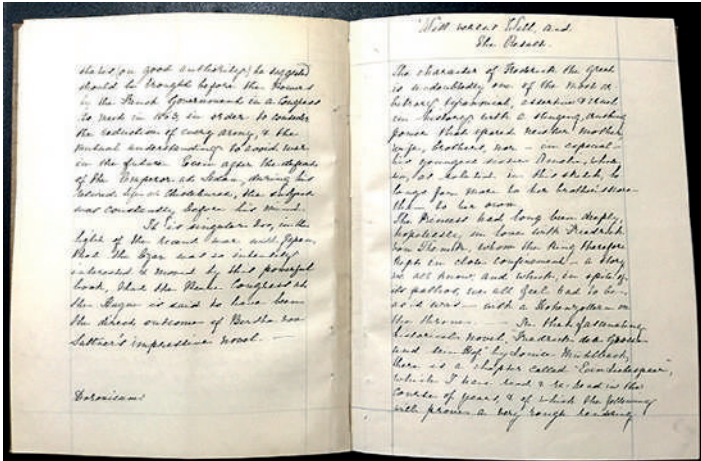 shows (on good authority) he suggested
should be brought before the Powers
by the French Government in a Congress
to meet in 1863, in order to consider
the reduction of every army, & the
mutual understanding to avoid war
in the future. Even after the defeat
of the Emperor at Sedan, during his
retired life at Chislehurst, the subject
was constantly before his mind.
It is singular too, in the
light of the recent war with Japan,
that the Czar was so intensely
interested & moved by this powerful
book, that the Peace Congress at
the Hague is said to have been
the direct outcome of Bertha von
Suttner's impressive novel. —
"Will versus Will, and
The Result.
The character of Frederick the Great
is undoubtedly one of the most
arbitrary, tyrannical, assertive & cruel
in history with a stinging, crushing
power that spared neither mother
wife, brothers, nor — in especial —
his youngest sister Amalie, whose
as related in this sketch,
longs far more to her brother's
than to her own.
The Princess had long been deeply,
hopelessly, in love with Friedrich
von Trenck, whom the King therefore
kept in close confinement — a story
we all know, and which, in spite of
its pathos, we all feel had to be
as it was — with a Hohenzollern on
the throne. — In that fascinating
historical novel, Friedrich der Grosse
und sein Hof, by Louise Mühlbach,
there is a chapter called "Eva
which I have read & re-read in the
course of years, & of which the following
will prove a very rough rendering